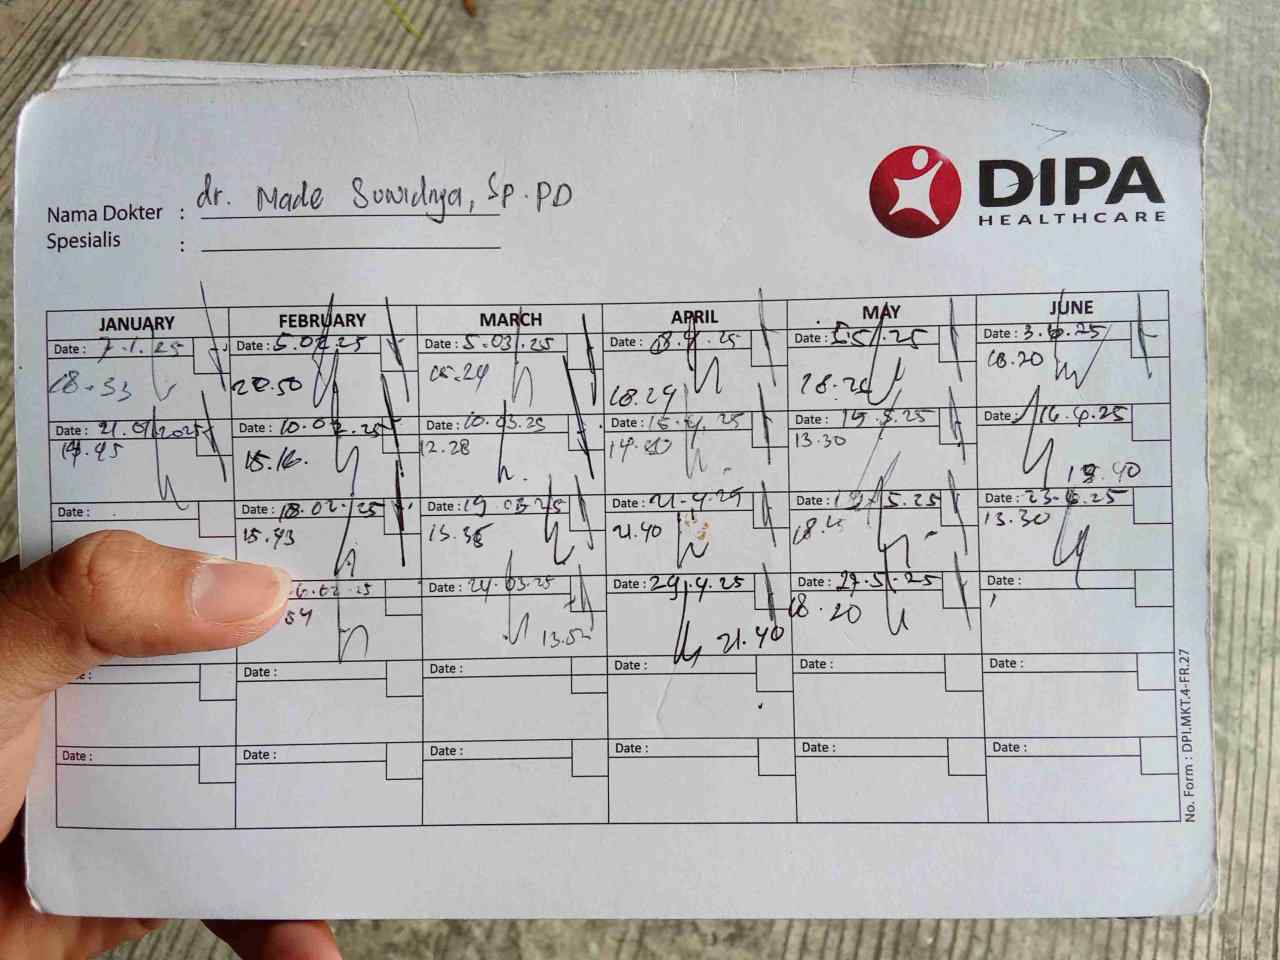 dr. Made Suwidnya, Sp.PD
Nama Dokter :
Spesialis :
DIPA
HEALTHCARE
JANUARY FEBRUARY MARCH APRIL MAY JUNE
Date : 7.1.25 Date : 5.02.25 Date : 5.03.25 Date : 8.4.25 Date : Date : 3.6.25
18.33 20.50 18.29 18.20
Date : 21.01.2025 Date : 10.02.25 Date : 10.03.25 Date : 15.4.25 Date : 19.5.25 Date :
15.16. 12.28 13.30 19.40
Date : Date : 18.02.25 Date : 19.03.25 Date : 21.4.25 Date : Date : 23.6.25
15.43 13.35 21.40 13.30
Date : 24.03.25 Date : 29.4.25 Date : 27.5.25 Date :
54 21.40 18.20
Date : Date : Date : Date : Date :
Date : Date : Date : Date : Date : Date :
No. Form : DPI.MKT.4-FR.27